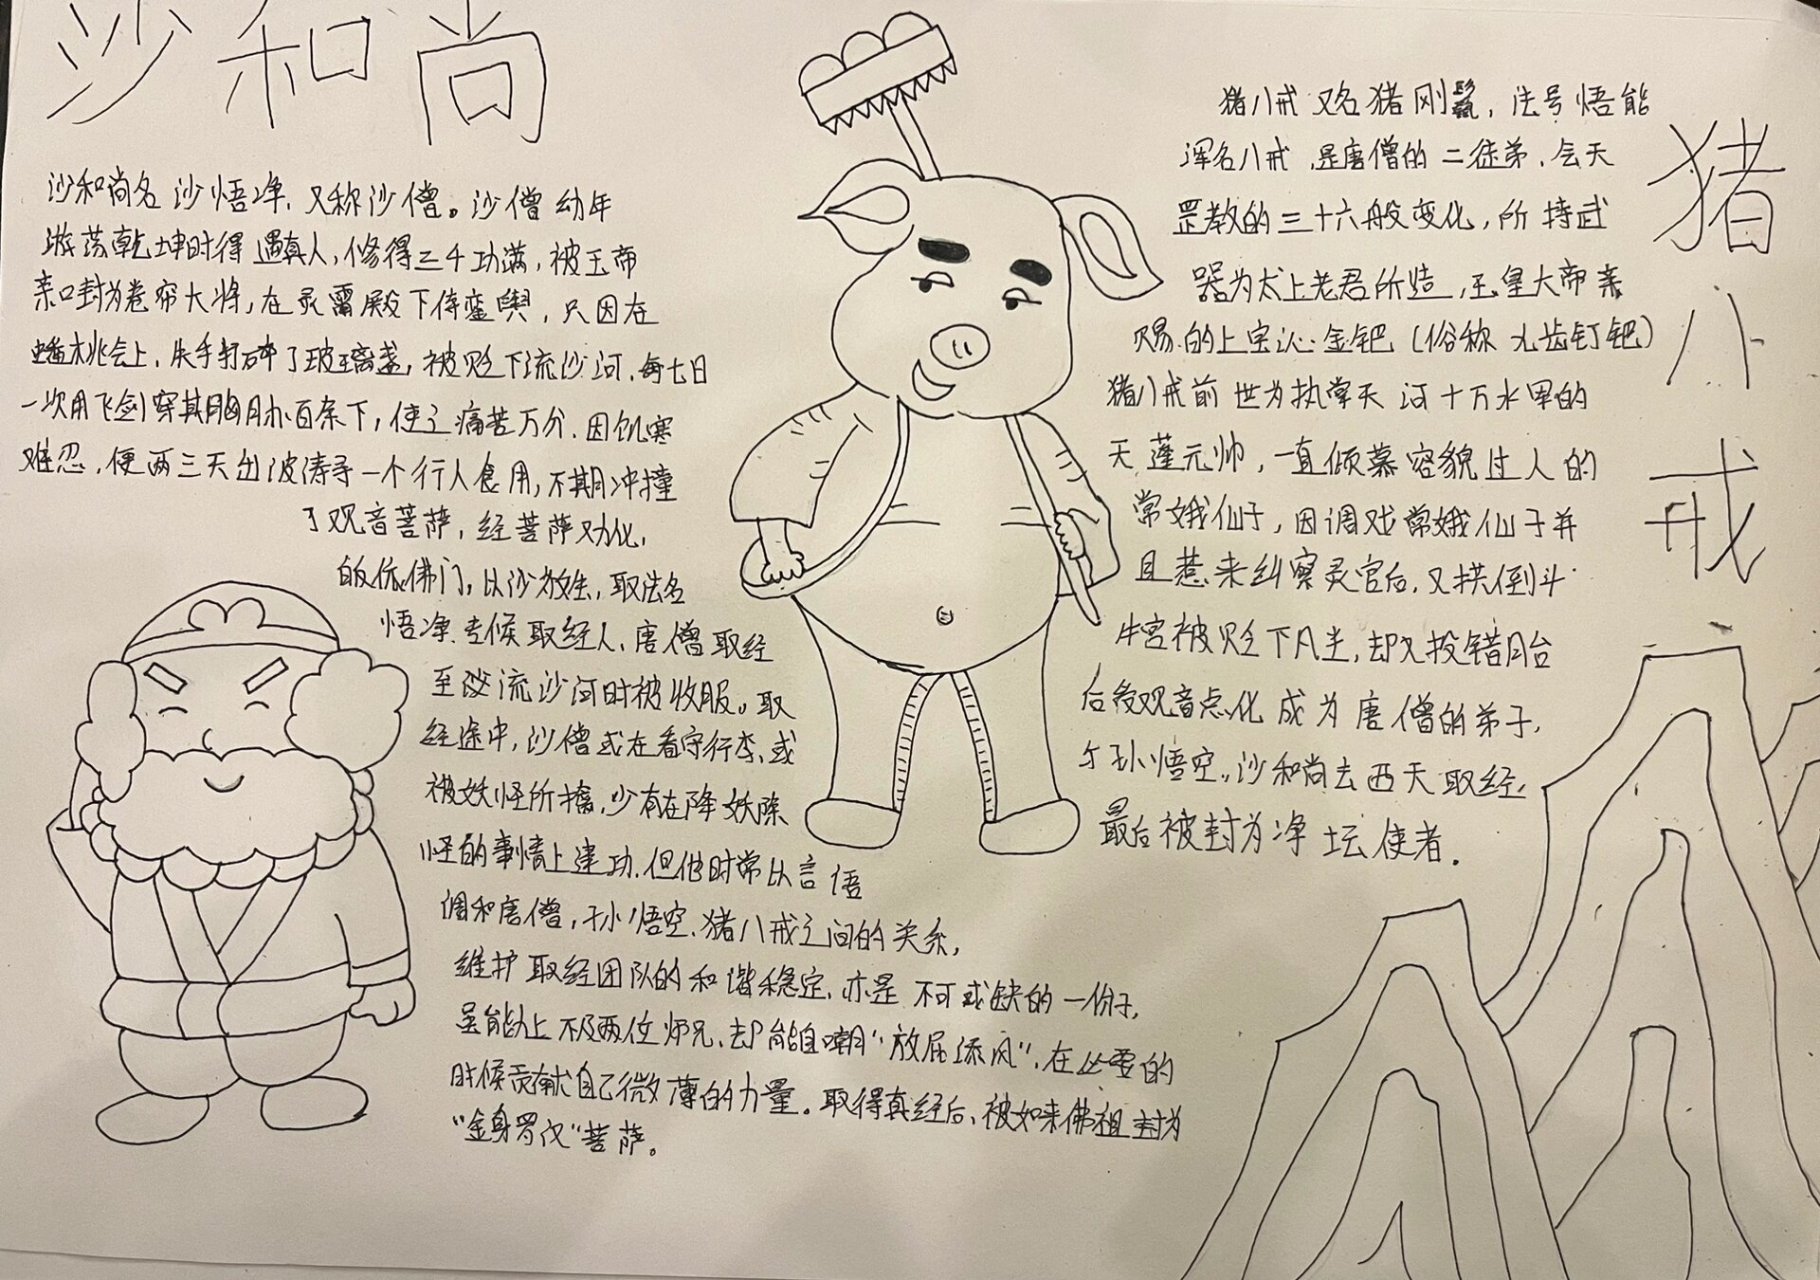 沙和尚
沙和尚名沙悟净,又称沙僧。沙僧幼年
游荡乾坤时得遇真人,修得三千功满,被玉帝
亲口封为卷帘大将,在灵霄殿下侍銮舆,只因在
蟠桃会上,失手打碎了玻璃盏,被贬下流沙河,每七日
一次用飞剑穿其胸胁百余下,使之痛苦万分.因饥寒
难忍,便两三天出波涛寻一个行人食用,不期冲撞
了观音菩萨,经菩萨劝化,
的依佛门,以沙为姓,取法名
悟净.专候取经人,唐僧取经
至流沙河时被收服。取
经途中,沙僧或在看守行李,或
被妖怪所擒,少有在降妖除
怪的事情上建功.但他时常以言语
调和唐僧,孙悟空.猪八戒之间的关系,
维护取经团队的和谐稳定,亦是不可或缺的一份子,
虽能力上不及两位师兄,却能自嘲"放屁添风",在必要的
时候贡献自己微薄的力量。取得真经后,被如来佛祖封为
"金身罗汉"菩萨。
猪八戒
猪八戒又名猪刚鬣,法号悟能
浑名八戒,是唐僧的二徒弟.会天
罡教的三十六般变化,所持武
器为太上老君所造,玉皇大帝亲
赐的上宝沁金钯(俗称九齿钉钯)
猪八戒前世为执掌天河十万水军的
天蓬元帅,一直倾慕容貌过人的
常娥仙子,因调戏常娥仙子并
且惹来纠察灵官后,又拱倒斗
牛宫被贬下凡尘,却又投错月台
后多观音点化成为唐僧的弟子,
与孙悟空,沙和尚去西天取经,
最后被封为净坛使者.